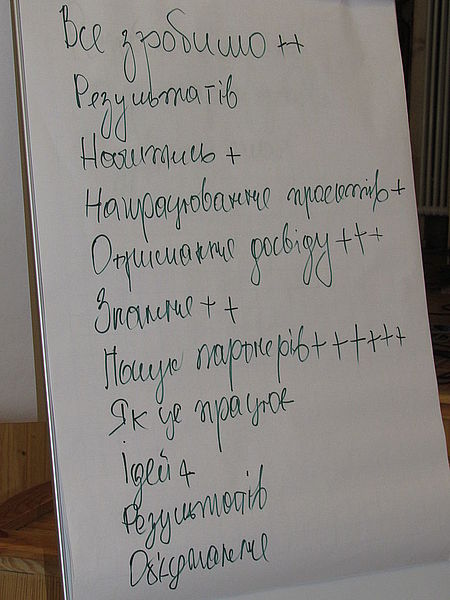 Все зробимо ++
Результатів
Навчитись +
Напрацювання проектів +
Отримання досвіду +++
Знання ++
Пошук парнерів ++++++
Як це працює
Ідей +
Результатів